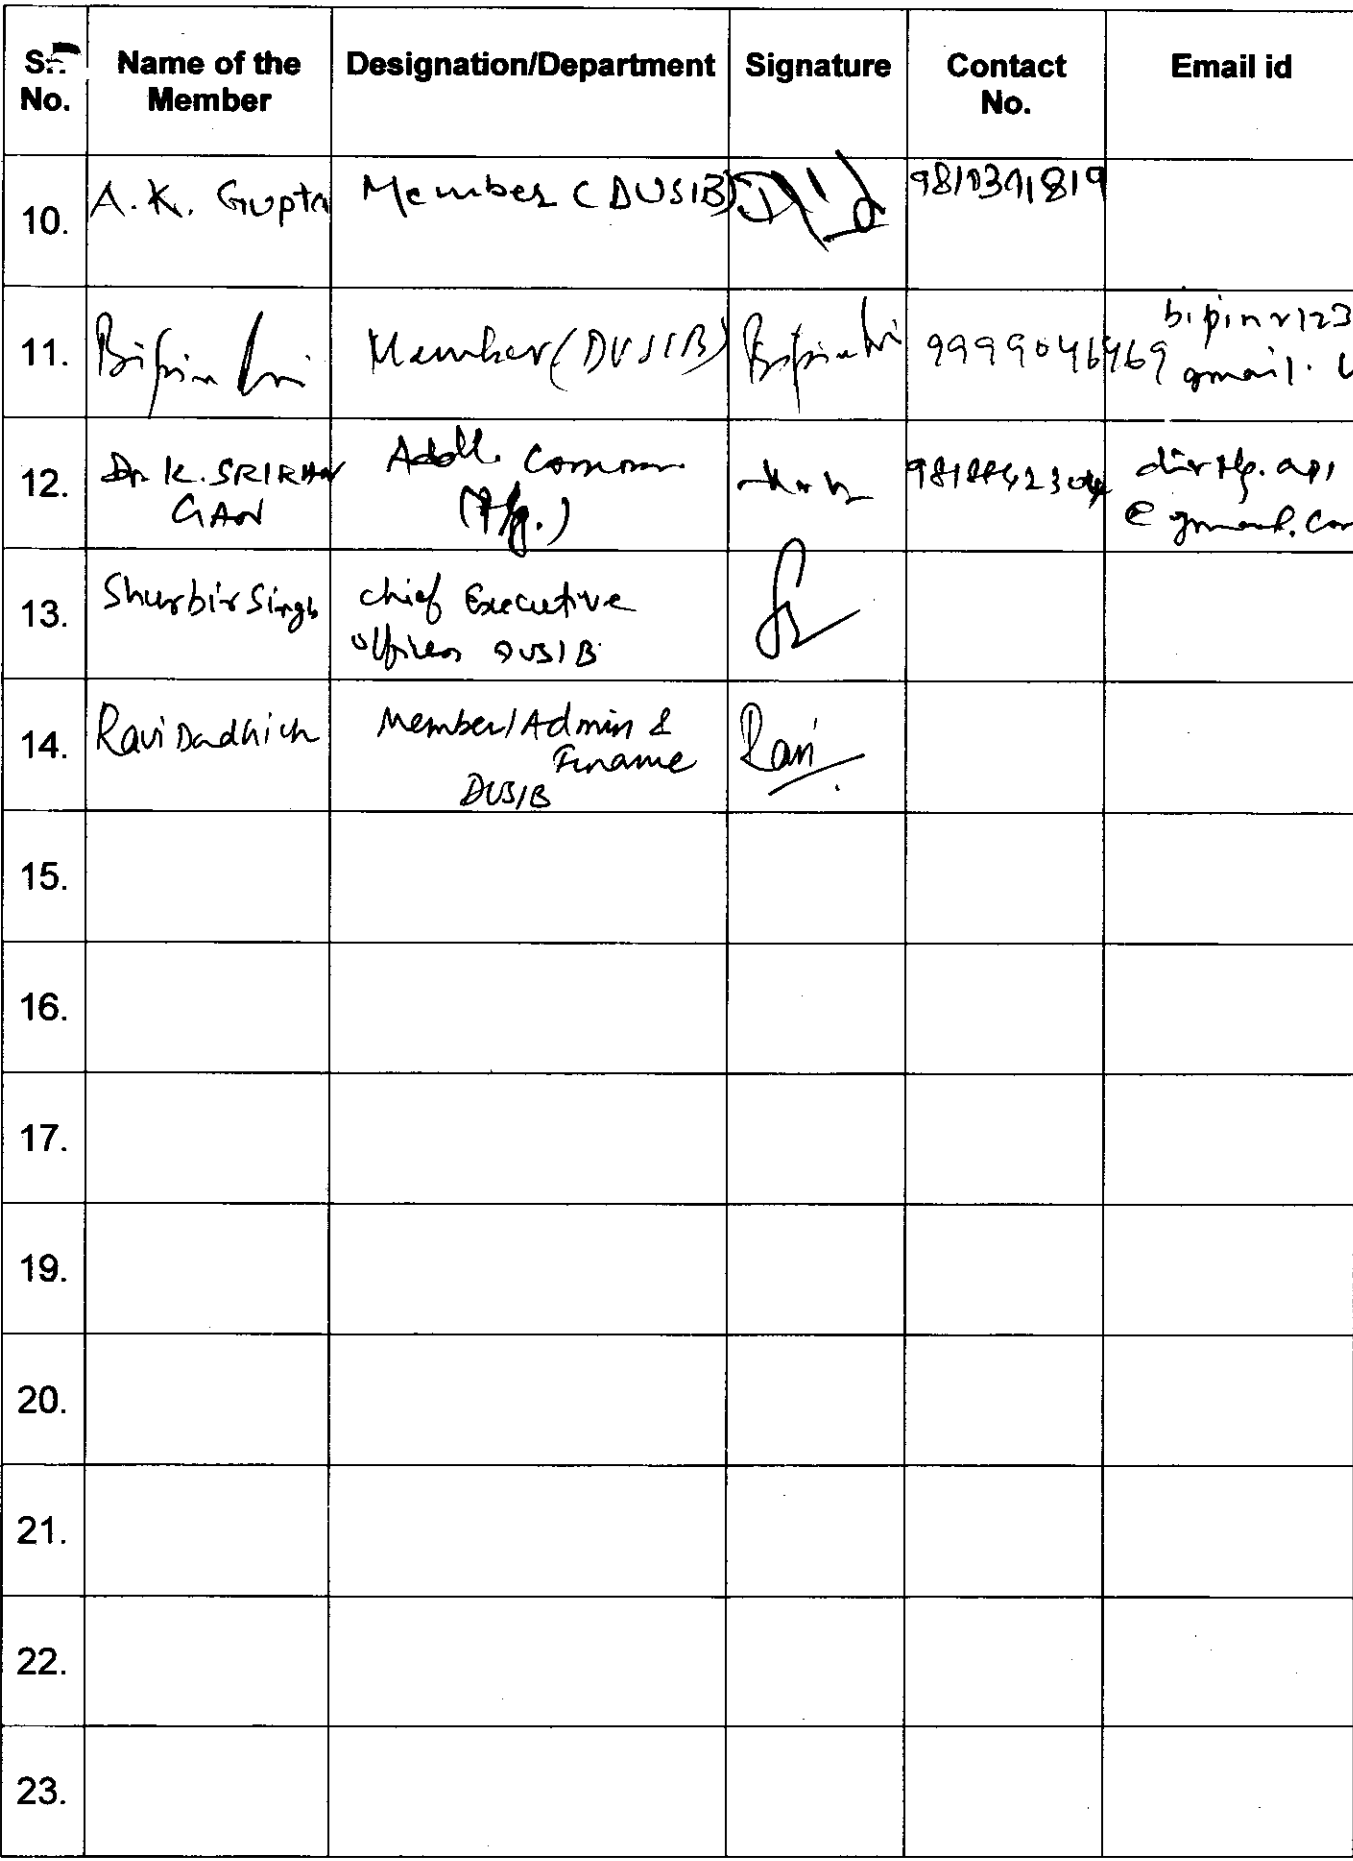 Sr. No. Name of the Member Designation/Department Signature Contact No. Email id
10. A.K. Gupta Member (DUSIB) 9810391819
11. Bipin Member (DUSIB) Bipin 9999046469 bipinr123 gmail.
12. Dr. K. SRIRAN GAN Addl. Commr. 
13. Shurbir Singh Chief Executive Officer DUSIB
14. Ravi Dadhich Member/Admin & Finance DUSIB Ravi
15.
16.
17.
19.
20.
21.
22.
23.